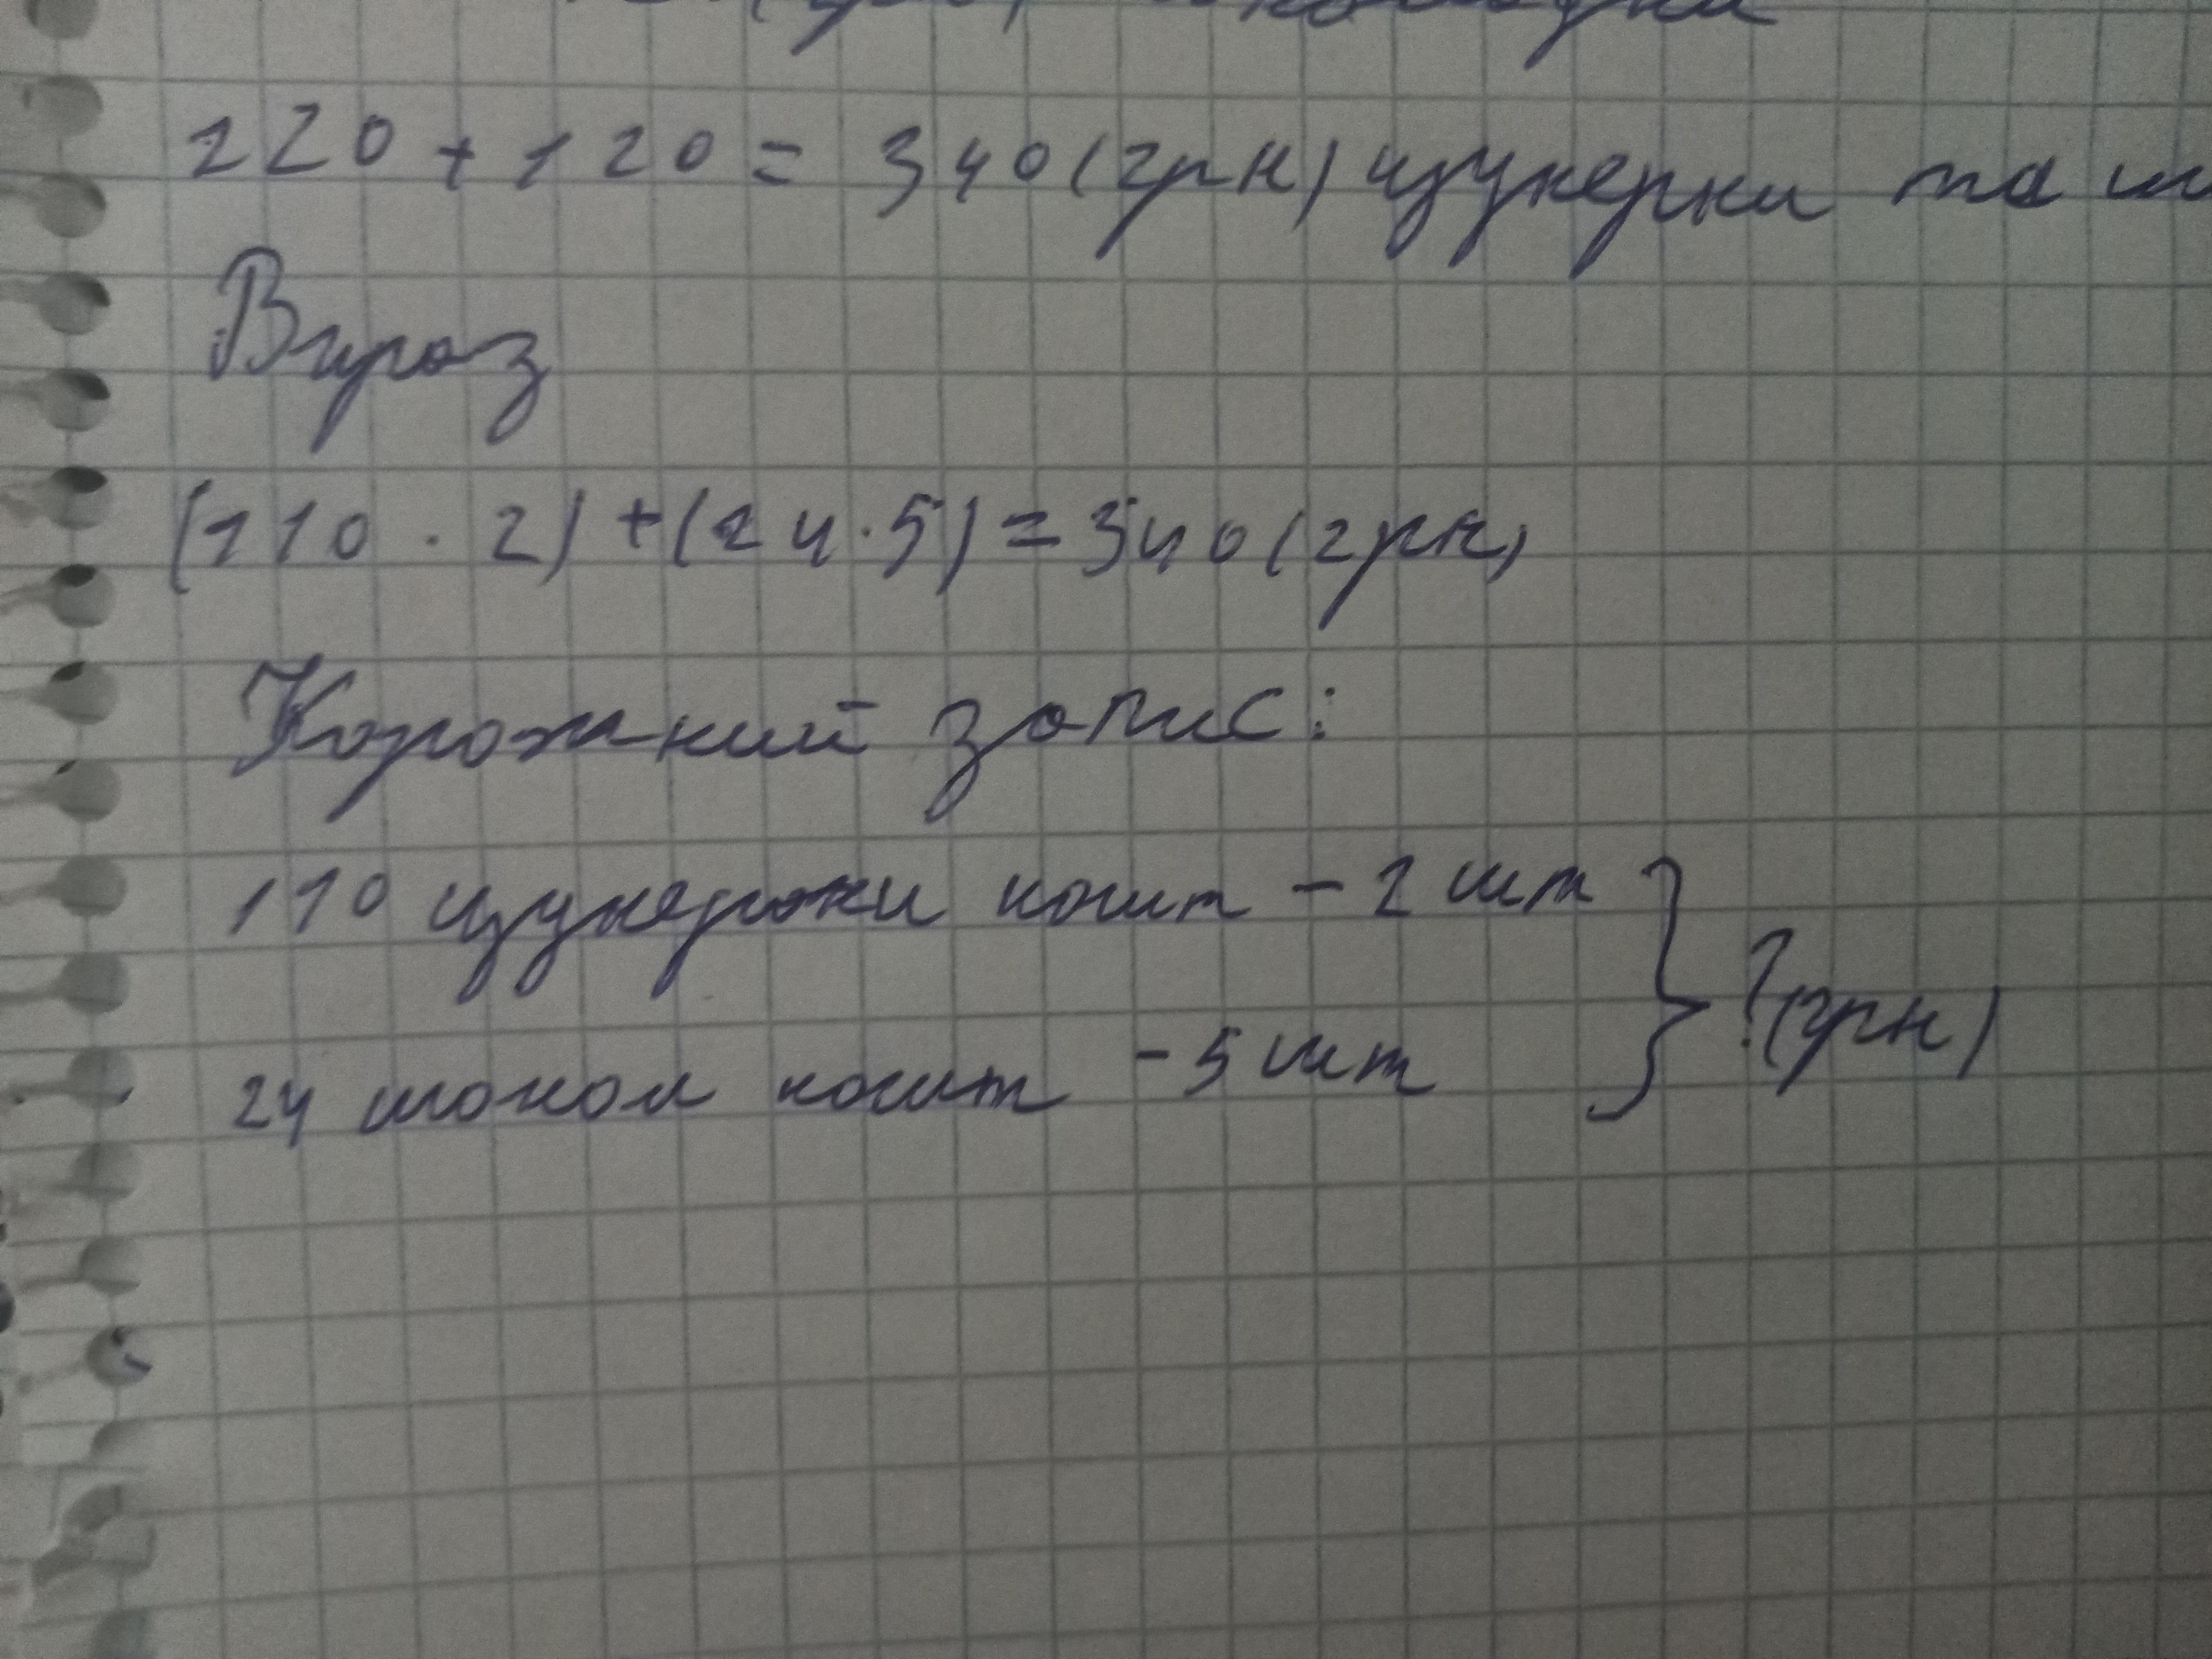 220 + 120 = 340 (грн) цукерки та ш
Вираз
(110 · 2) + (24 · 5) = 340 (грн)
Короткий запис:
110 цукерки кошт - 2 шт
? (грн)
24 шокол кошт - 5 шт